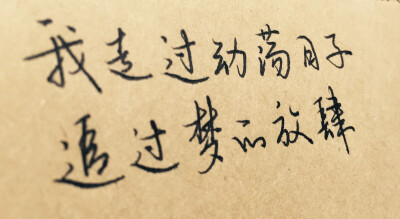 我走过动荡日子
追过梦的放肆